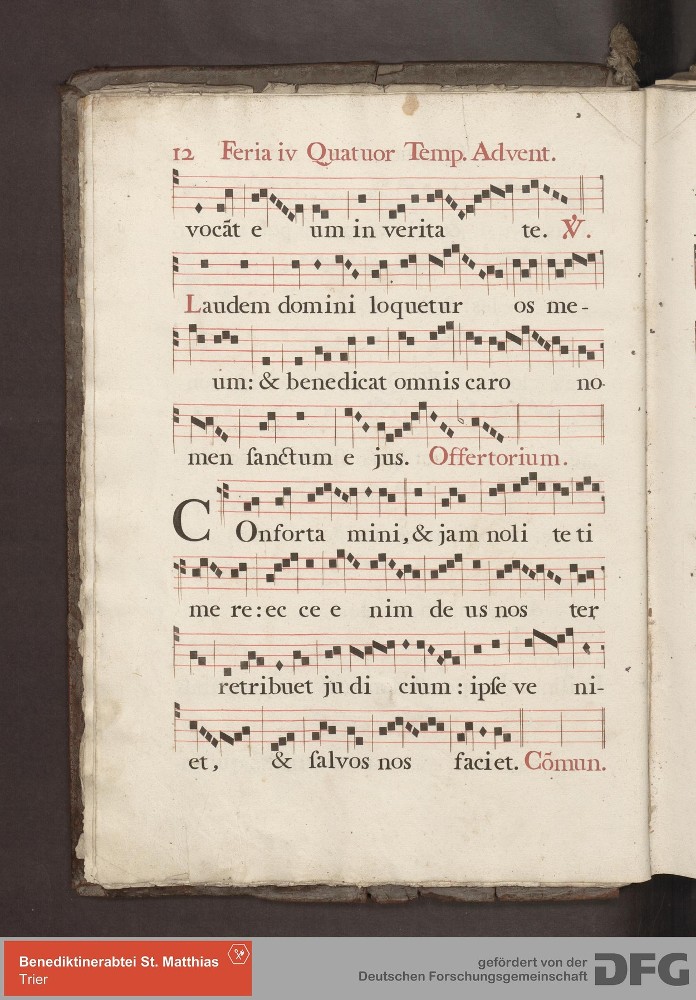 12 Feria iv Quatuor Temp. Advent.
vocāt e um in verita te. ℣.
Laudem domini loquetur os me-
um: & benedicat omnis caro no-
men ſanctum e jus. Offertorium.
COnforta mini, & jam noli te ti
me re: ec ce e nim de us nos ter
retribuet ju di cium: ipſe ve ni-
et, & ſalvos nos faciet. Cõmun.
Benediktinerabtei St. Matthias
Trier
gefördert von der
Deutschen Forschungsgemeinschaft
DFG